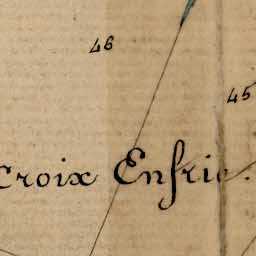 46
45
Croix Enfrie.